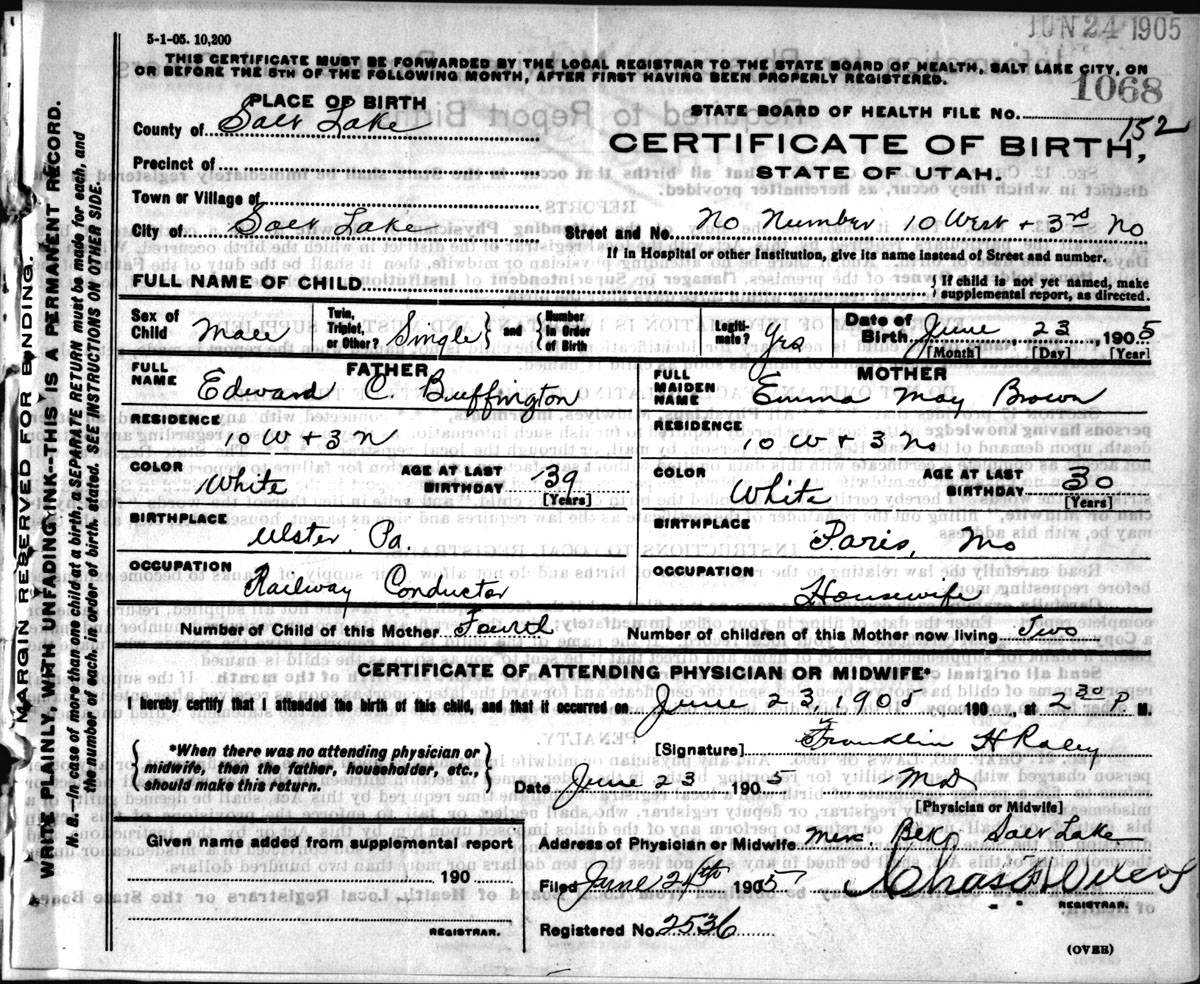 JUN 24 1905
5-1-05. 10,200
THIS CERTIFICATE MUST BE FORWARDED BY THE LOCAL REGISTRAR TO THE STATE BOARD OF HEALTH, SALT LAKE CITY, ON
OR BEFORE THE 5TH OF THE FOLLOWING MONTH, AFTER FIRST HAVING BEEN PROPERLY REGISTERED.
1068
PLACE OF BIRTH
STATE BOARD OF HEALTH FILE NO. 152
County of Salt Lake
CERTIFICATE OF BIRTH,
Precinct of
STATE OF UTAH.
Town or Village of
City of Salt Lake Street and No. No Number 10 West + 3rd No
If in Hospital or other Institution, give its name instead of Street and number.
FULL NAME OF CHILD. If child is not yet named, make supplemental report, as directed.
Sex of Child Male Twin, Triplet, or Other? Single and Number in Order of Birth Legiti-mate? Yes Date of Birth June 23, 1905
[Month] [Day] [Year]
FATHER MOTHER
FULL NAME Edward C. Buffington FULL MAIDEN NAME Emma May Brown
RESIDENCE RESIDENCE
10 W + 3 N 10 W + 3 No
COLOR White AGE AT LAST BIRTHDAY 39 [Years] COLOR White AGE AT LAST BIRTHDAY 30 [Years]
BIRTHPLACE BIRTHPLACE
Ulster, Pa. Paris, Mo
OCCUPATION OCCUPATION
Railway Conductor Housewife
Number of Child of this Mother Fourth Number of children of this Mother now living Two
CERTIFICATE OF ATTENDING PHYSICIAN OR MIDWIFE*
I hereby certify that I attended the birth of this child, and that it occurred on June 23, 1905 190 , at 2 30 P M.
*When there was no attending physician or
midwife, then the father, householder, etc.,
should make this return.
[Signature] Franklin H Raley
Date June 23 1905 MD
[Physician or Midwife]
Given name added from supplemental report
190
REGISTRAR.
Address of Physician or Midwife Salt Lake
Filed June 24th 1905
REGISTRAR.
Registered No. 2536
(OVER)
MARGIN RESERVED FOR BINDING.
WRITE PLAINLY, WITH UNFADING INK--THIS IS A PERMANENT RECORD.
N. B.--In case of more than one child at a birth, a SEPARATE RETURN must be made for each, and
the number of each, in order of birth, stated. SEE INSTRUCTIONS ON OTHER SIDE.